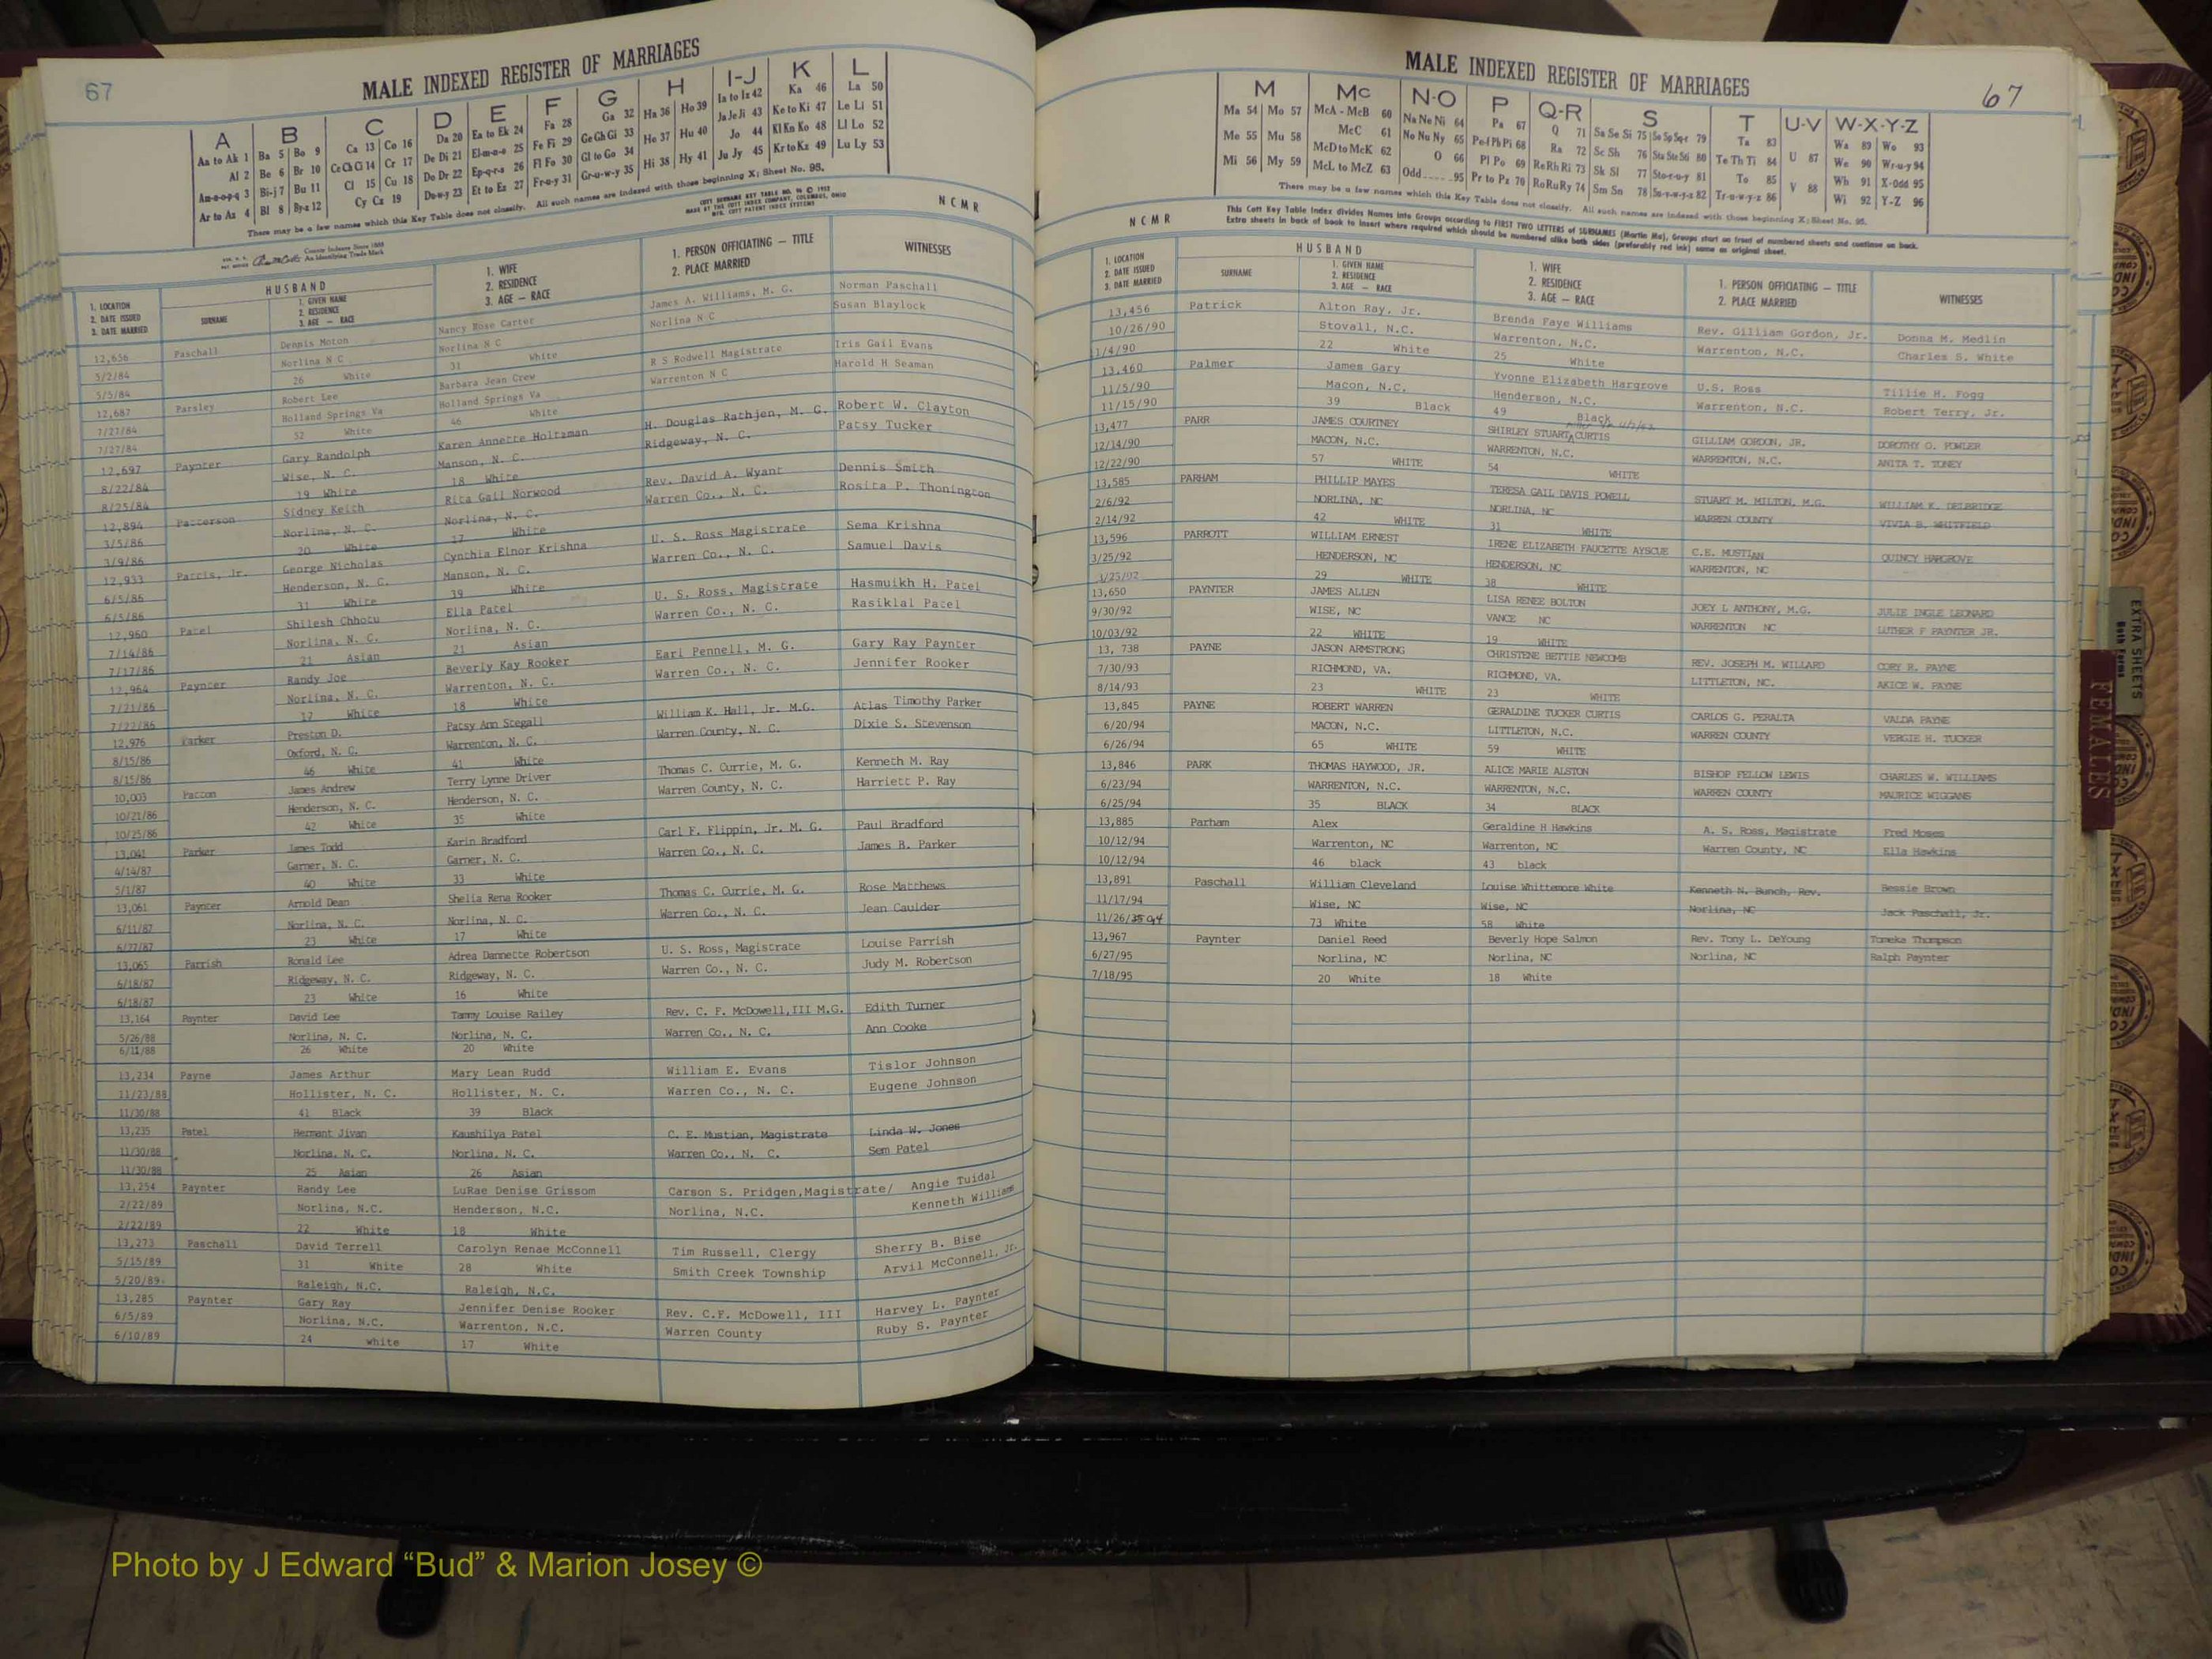 67
MALE INDEXED REGISTER OF MARRIAGES
A B C D E F G H I-J K L
Aa to Ak 1 Ba 5 Bo 9 Ca 13 Co 16 Da 20 Ea to Ek 24 Fa 28 Ga 32 Ha 36 Ho 39 Ia to Iz 42 Ka 46 La 50
Al 2 Be 6 Br 10 Ce Ch Ci 14 Cr 17 De Di 21 El-m-n-o 25 Fe Fi 29 Ge Gh Gi 33 He 37 Hu 40 Ja Je Ji 43 Ke to Ki 47 Le Li 51
Am-n-o-p-q 3 Bi-j 7 Bu 11 Cl 15 Cu 18 Do Dr 22 Ep-q-r-s 26 Fl Fo 30 Gl to Go 34 Hi 38 Hy 41 Jo 44 Kl Kn Ko 48 Ll Lo 52
Ar to Az 4 Bl 8 By-z 12 Cy Cz 19 Du-w-y 23 Et to Ez 27 Fr-u-y 31 Gr-u-w-y 35 Ju Jy 45 Kr to Kz 49 Lu Ly 53
There may be a few names which this Key Table does not classify. All such names are indexed with those beginning X; Sheet No. 95.
COTT SURNAME KEY TABLE NO. 96 © 1952
MADE BY THE COTT INDEX COMPANY, COLUMBUS, OHIO
MFG. COTT PATENT INDEX SYSTEMS
N C M R
County Indexes Since 1888
An Identifying Trade Mark
1. LOCATION
2. DATE ISSUED
3. DATE MARRIED
HUSBAND
SURNAME
1. GIVEN NAME
2. RESIDENCE
3. AGE — RACE
1. WIFE
2. RESIDENCE
3. AGE — RACE
1. PERSON OFFICIATING — TITLE
2. PLACE MARRIED
WITNESSES
12,656 Paschall Dennis Moton Nancy Rose Carter James A. Williams, M. G. Norman Paschall
5/2/84 Norlina N C Norlina N C Norlina N C Susan Blaylock
5/5/84 26 White 31 White
12,687 Parsley Robert Lee Barbara Jean Crew R S Rodwell Magistrate Iris Gail Evans
7/27/84 Holland Springs Va Holland Springs Va Warrenton N C Harold H Seaman
7/27/84 52 White 46 White
12,697 Paynter Gary Randolph Karen Annette Holtzman H. Douglas Rathjen, M. G. Robert W. Clayton
8/22/84 Wise, N. C. Manson, N. C. Ridgeway, N. C. Patsy Tucker
8/25/84 19 White 18 White
12,894 Patterson Sidney Keith Rita Gail Norwood Rev. David A. Wyant Dennis Smith
3/5/86 Norlina, N. C. Norlina, N. C. Warren Co., N. C. Rosita P. Thonington
3/9/86 20 White 17 White
12,933 Parris, Jr. George Nicholas Cynthia Elnor Krishna U. S. Ross Magistrate Sema Krishna
6/5/86 Henderson, N. C. Manson, N. C. Warren Co., N. C. Samuel Davis
6/5/86 31 White 39 White
12,960 Patel Shilesh Chhotu Ella Patel U. S. Ross, Magistrate Hasmuikh H. Patel
7/14/86 Norlina, N. C. Norlina, N. C. Warren Co., N. C. Rasiklal Patel
7/17/86 21 Asian 21 Asian
12,964 Paynter Randy Joe Beverly Kay Rooker Earl Pennell, M. G. Gary Ray Paynter
7/21/86 Norlina, N. C. Warrenton, N. C. Warren Co., N. C. Jennifer Rooker
7/22/86 17 White 18 White
12,976 Parker Preston D. Patsy Ann Stegall William K. Hall, Jr. M.G. Atlas Timothy Parker
8/15/86 Oxford, N. C. Warrenton, N. C. Warren County, N. C. Dixie S. Stevenson
8/15/86 46 White 41 White
10,003 Patton James Andrew Terry Lynne Driver Thomas C. Currie, M. G. Kenneth M. Ray
10/21/86 Henderson, N. C. Henderson, N. C. Warren County, N. C. Harriett P. Ray
10/25/86 42 White 35 White
13,041 Parker James Todd Karin Bradford Carl F. Flippin, Jr. M. G. Paul Bradford
4/14/87 Garner, N. C. Garner, N. C. Warren Co., N. C. James B. Parker
5/1/87 40 White 33 White
13,061 Paynter Arnold Dean Shelia Rena Rooker Thomas C. Currie, M. G. Rose Matthews
6/11/87 Norlina, N. C. Norlina, N. C. Warren Co., N. C. Jean Caulder
6/27/87 23 White 17 White
13,065 Parrish Ronald Lee Adrea Dannette Robertson U. S. Ross, Magistrate Louise Parrish
6/18/87 Ridgeway, N. C. Ridgeway, N. C. Warren Co., N. C. Judy M. Robertson
6/18/87 23 White 16 White
13,164 Paynter David Lee Tammy Louise Railey Rev. C. F. McDowell,III M.G. Edith Turner
5/26/88 Norlina, N. C. Norlina, N. C. Warren Co., N. C. Ann Cooke
6/11/88 26 White 20 White
13,234 Payne James Arthur Mary Lean Rudd William E. Evans Tislor Johnson
11/23/88 Hollister, N. C. Hollister, N. C. Warren Co., N. C. Eugene Johnson
11/30/88 41 Black 39 Black
13,235 Patel Hermant Jivan Kaushilya Patel C. E. Mustian, Magistrate Linda W. Jones
11/30/88 Norlina, N. C. Norlina, N. C. Warren Co., N. C. Sem Patel
11/30/88 25 Asian 26 Asian
13,254 Paynter Randy Lee LuRae Denise Grissom Carson S. Pridgen,Magistrate/ Angie Tuidal
2/22/89 Norlina, N.C. Henderson, N.C. Norlina, N.C. Kenneth Williams
2/22/89 22 White 18 White
13,273 Paschall David Terrell Carolyn Renae McConnell Tim Russell, Clergy Sherry B. Bise
5/15/89 31 White 28 White Smith Creek Township Arvil McConnell, Jr.
5/20/89 Raleigh, N.C. Raleigh, N.C.
13,285 Paynter Gary Ray Jennifer Denise Rooker Rev. C.F. McDowell, III Harvey L. Paynter
6/5/89 Norlina, N.C. Warrenton, N.C. Warren County Ruby S. Paynter
6/10/89 24 white 17 White
MALE INDEXED REGISTER OF MARRIAGES
67
M Mc N-O P Q-R S T U-V W-X-Y-Z
Ma 54 Mo 57 McA - McB 60 Na Ne Ni 64 Pa 67 Q 71 Sa Se Si 75 So Sp Sq-r 79 Ta 83 U 87 Wa 89 Wo 93
Me 55 Mu 58 McC 61 No Nu Ny 65 Pe-f Ph Pi 68 Ra 72 Sc Sh 76 Sta Ste Sti 80 Te Th Ti 84 V 88 We 90 Wr-u-y 94
Mi 56 My 59 McD to McK 62 O 66 Pl Po 69 Re Rh Ri 73 Sk Sl 77 Sto-r-u-y 81 To 85 Wh 91 X-Odd 95
McL to McZ 63 Odd 95 Pr to Pz 70 Ro Ru Ry 74 Sm Sn 78 Su-v-w-y-z 82 Tr-u-w-y-z 86 Wi 92 Y-Z 96
There may be a few names which this Key Table does not classify. All such names are indexed with those beginning X; Sheet No. 95.
N C M R
This Cott Key Table Index divides Names into Groups according to FIRST TWO LETTERS of SURNAMES (Martin Ma), Groups start on front of numbered sheets and continue on back.
Extra sheets in back of book to insert where required which should be numbered alike both sides (preferably red ink) same as original sheet.
1. LOCATION
2. DATE ISSUED
3. DATE MARRIED
HUSBAND
SURNAME
1. GIVEN NAME
2. RESIDENCE
3. AGE — RACE
1. WIFE
2. RESIDENCE
3. AGE — RACE
1. PERSON OFFICIATING — TITLE
2. PLACE MARRIED
WITNESSES
13,456 Patrick Alton Ray, Jr. Brenda Faye Williams Rev. Gilliam Gordon, Jr. Donna M. Medlin
10/26/90 Stovall, N.C. Warrenton, N.C. Warrenton, N.C. Charles S. White
11/4/90 22 White 25 White
13,460 Palmer James Gary Yvonne Elizabeth Hargrove U.S. Ross Tillie H. Fogg
11/5/90 Macon, N.C. Henderson, N.C. Warrenton, N.C. Robert Terry, Jr.
11/15/90 39 Black 49 Black
13,477 PARR JAMES COURTNEY SHIRLEY STUART CURTIS GILLIAM GORDON, JR. DOROTHY O. FOWLER
12/14/90 MACON, N.C. WARRENTON, N.C. WARRENTON, N.C. ANITA T. TONEY
12/22/90 57 WHITE 54 WHITE
13,585 PARHAM PHILLIP MAYES TERESA GAIL DAVIS POWELL STUART M. MILTON, M.G. WILLIAM K. DELBRIDGE
2/6/92 NORLINA, NC NORLINA, NC WARREN COUNTY VIVIA B. WHITFIELD
2/14/92 42 WHITE 31 WHITE
13,596 PARROTT WILLIAM ERNEST IRENE ELIZABETH FAUCETTE AYSCUE C.E. MUSTIAN QUINCY HARGROVE
3/25/92 HENDERSON, NC HENDERSON, NC WARRENTON, NC
3/25/92 29 WHITE 38 WHITE
13,650 PAYNTER JAMES ALLEN LISA RENEE BOLTON JOEY L ANTHONY, M.G. JULIE INGLE LEONARD
9/30/92 WISE, NC VANCE NC WARRENTON NC LUTHER F PAYNTER JR.
10/03/92 22 WHITE 19 WHITE
13, 738 PAYNE JASON ARMSTRONG CHRISTENE BETTIE NEWCOMB REV. JOSEPH M. WILLARD CORY R. PAYNE
7/30/93 RICHMOND, VA. RICHMOND, VA. LITTLETON, NC. AKICE W. PAYNE
8/14/93 23 WHITE 23 WHITE
13,845 PAYNE ROBERT WARREN GERALDINE TUCKER CURTIS CARLOS G. PERALTA VALDA PAYNE
6/20/94 MACON, N.C. LITTLETON, N.C. WARREN COUNTY VERGIE H. TUCKER
6/26/94 65 WHITE 59 WHITE
13,846 PARK THOMAS HAYWOOD, JR. ALICE MARIE ALSTON BISHOP FELLOW LEWIS CHARLES W. WILLIAMS
6/23/94 WARRENTON, N.C. WARRENTON, N.C. WARREN COUNTY MAURICE WIGGANS
6/25/94 35 BLACK 34 BLACK
13,885 Parham Alex Geraldine H Hawkins A. S. Ross, Magistrate Fred Moses
10/12/94 Warrenton, NC Warrenton, NC Warren County, NC Ella Hawkins
10/12/94 46 black 43 black
13,891 Paschall William Cleveland Louise Whittemore White Kenneth N. Bunch, Rev. Bessie Brown
11/17/94 Wise, NC Wise, NC Norlina, NC Jack Paschall, Jr.
11/26/94 73 White 58 White
13,967 Paynter Daniel Reed Beverly Hope Salmon Rev. Tony L. DeYoung Tomeka Thompson
6/27/95 Norlina, NC Norlina, NC Norlina, NC Ralph Paynter
7/18/95 20 White 18 White
EXTRA SHEETS
FEMALES
Photo by J Edward “Bud” & Marion Josey ©